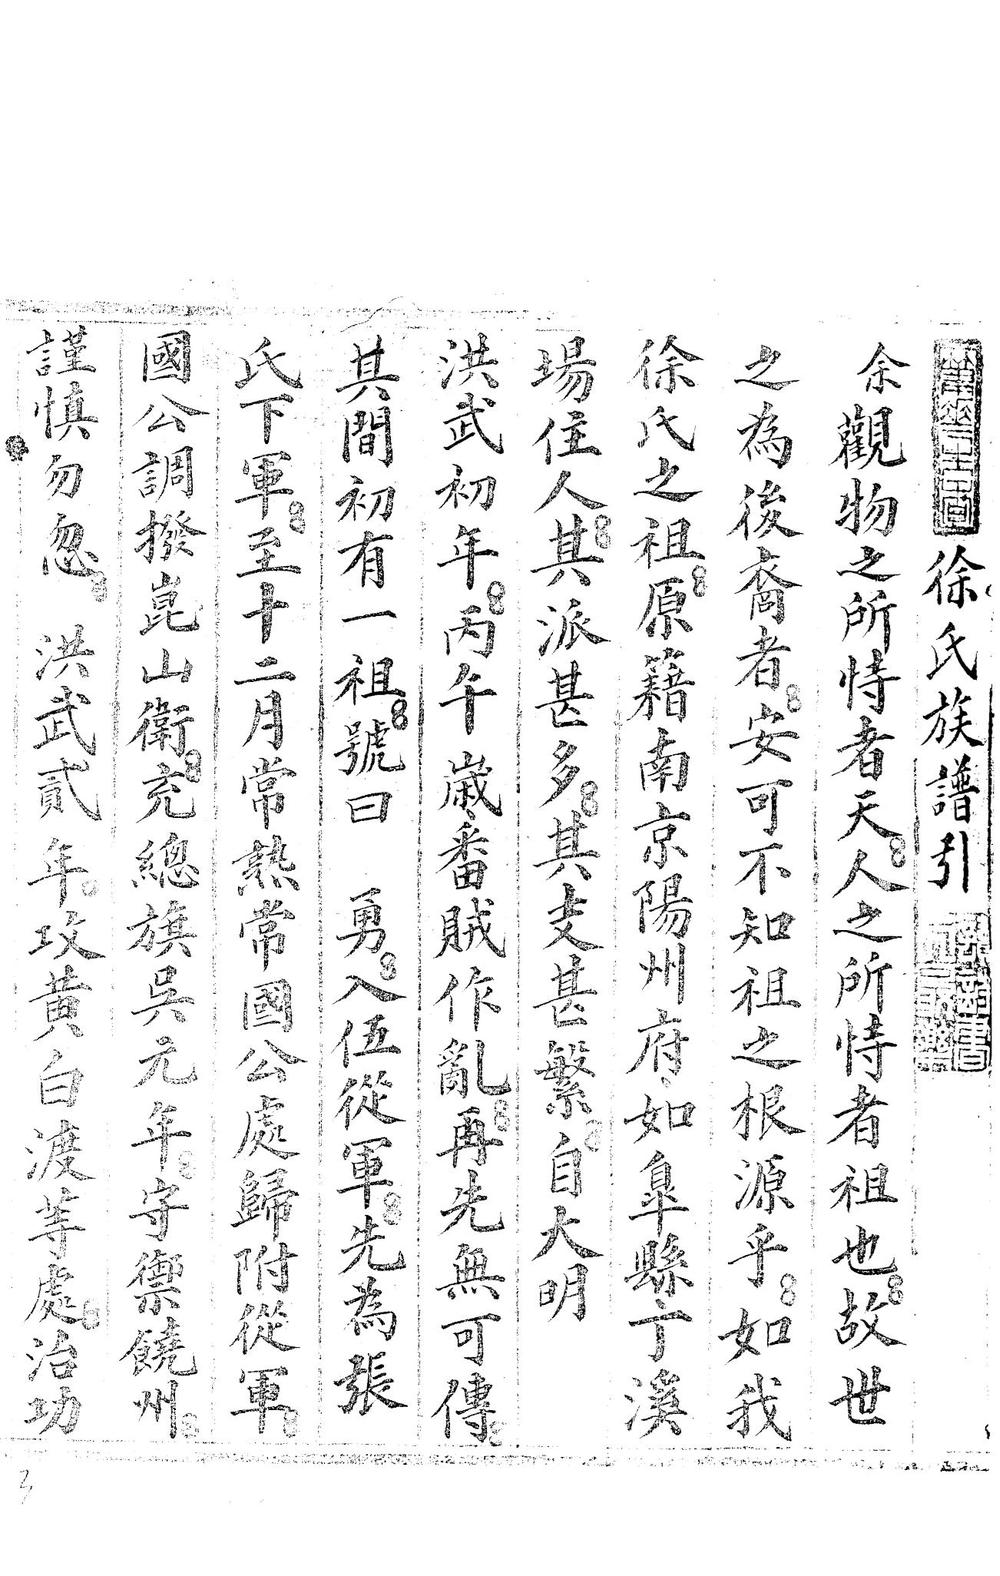 徐氏族譜引
余觀物之所恃者天人之所恃者祖也故世
之為後裔者安可不知祖之根源乎如我
徐氏之祖原籍南京陽州府如臯縣亍溪
場住人其派甚多其支甚繁自大明
洪武初年丙午歲番賊作亂再先無可傳
其間初有一祖號曰 勇入伍從軍先為張
氏下軍至十二月常熟常國公處歸附從軍
國公調撥崑山衛充總旗吳元年守禦饒州
謹慎勿忽 洪武貳年攻黃白渡等處治功